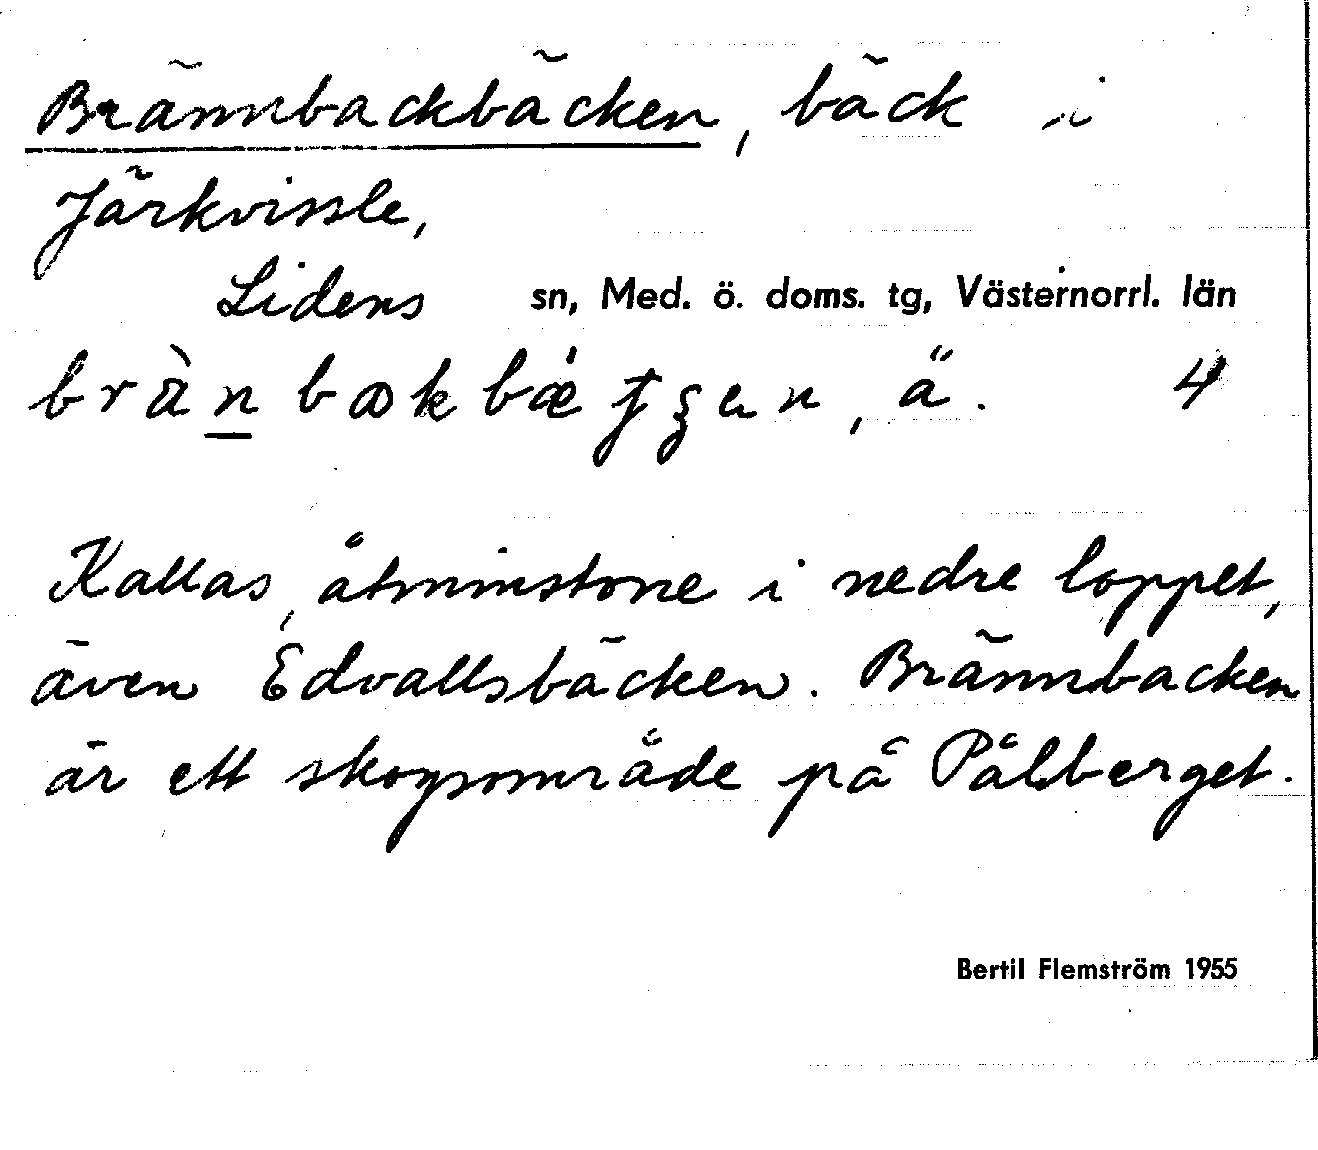 Brännbackbäcken, bäck i
Järkvissle,
Lidens sn, Med. ö. doms. tg, Västernorrl. län
ä. 4
Kallas, åtminstone i nedre loppet,
även Edvallsbäcken. Brännbacken
är ett skogsområde på Pålberget.
Bertil Flemström 1955